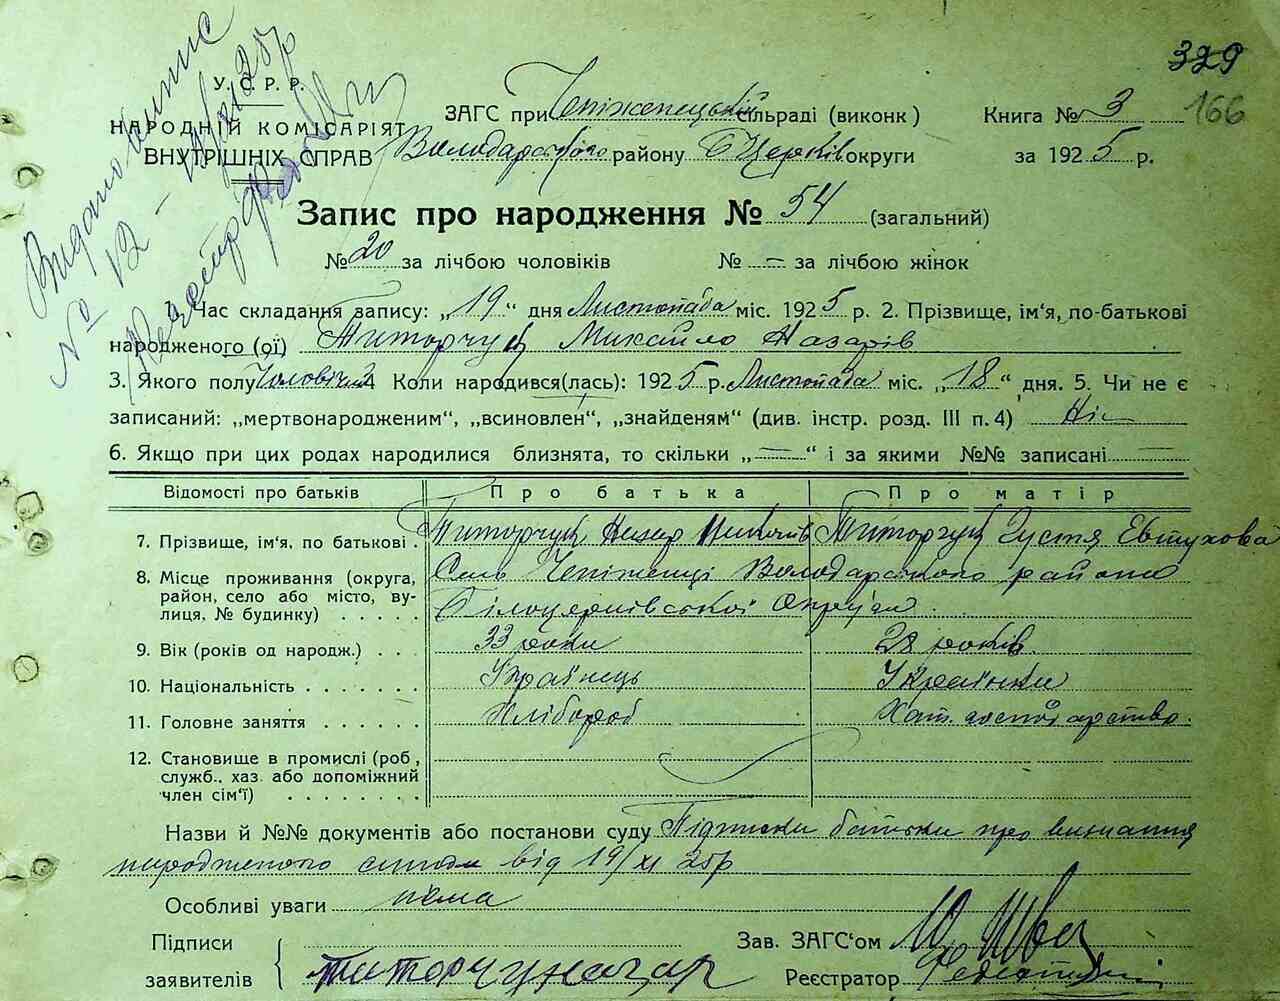 329
166
Видано выпис
№ 12
У. С. Р. Р.
НАРОДНІЙ КОМІСАРІЯТ
ВНУТРІШНІХ СПРАВ
ЗАГС при Чепіжепецькій сільраді (виконк )
Книга № 3
Володарського району Б Церків округи
за 1925 р.
Запис про народження № 54 (загальний)
№ 20 за лічбою чоловіків № — за лічбою жінок
1. Час складання запису: „19“ дня Листопада міс. 1925 р. 2. Прізвище, ім'я, по-батькові
народженого (ої) Титорчук Михайло Назарів
3. Якого полу Чоловічий 4 Коли народився(лась): 1925 р. Листопада міс. „18“ дня. 5. Чи не є
записаний: „мертвонародженим“, „всиновлен“, „знайденям“ (див. інстр. розд. III п. 4) Ні
6. Якщо при цих родах народилися близнята, то скільки „—“ і за якими №№ записані —
Відомості про батьків Про батька Про матір
7. Прізвище, ім'я, по батькові . Титорчук Назар Титорчук Густя Евтухова
8. Місце проживання (округа, Село Чепіженці Володарського району
район, село або місто, ву- Білоцерківської Округи
лиця, № будинку) . . . . .
9. Вік (років од народж.) . . . 33 роки 28 років
10. Національність . . . . . . . Українець Українка
11. Головне заняття . . . . . . Хлібороб Хат. господарство.
12. Становище в промислі (роб ,
служб., хаз. або допоміжний
член сім'ї) . . . . . . . .
Назви й №№ документів або постанови суду Підписки батьки про визнання
народженого сином від 19/XI 25р
Особливі уваги нема
Підписи
заявителів Титорчук Назар
Зав. ЗАГС'ом
Реєстратор